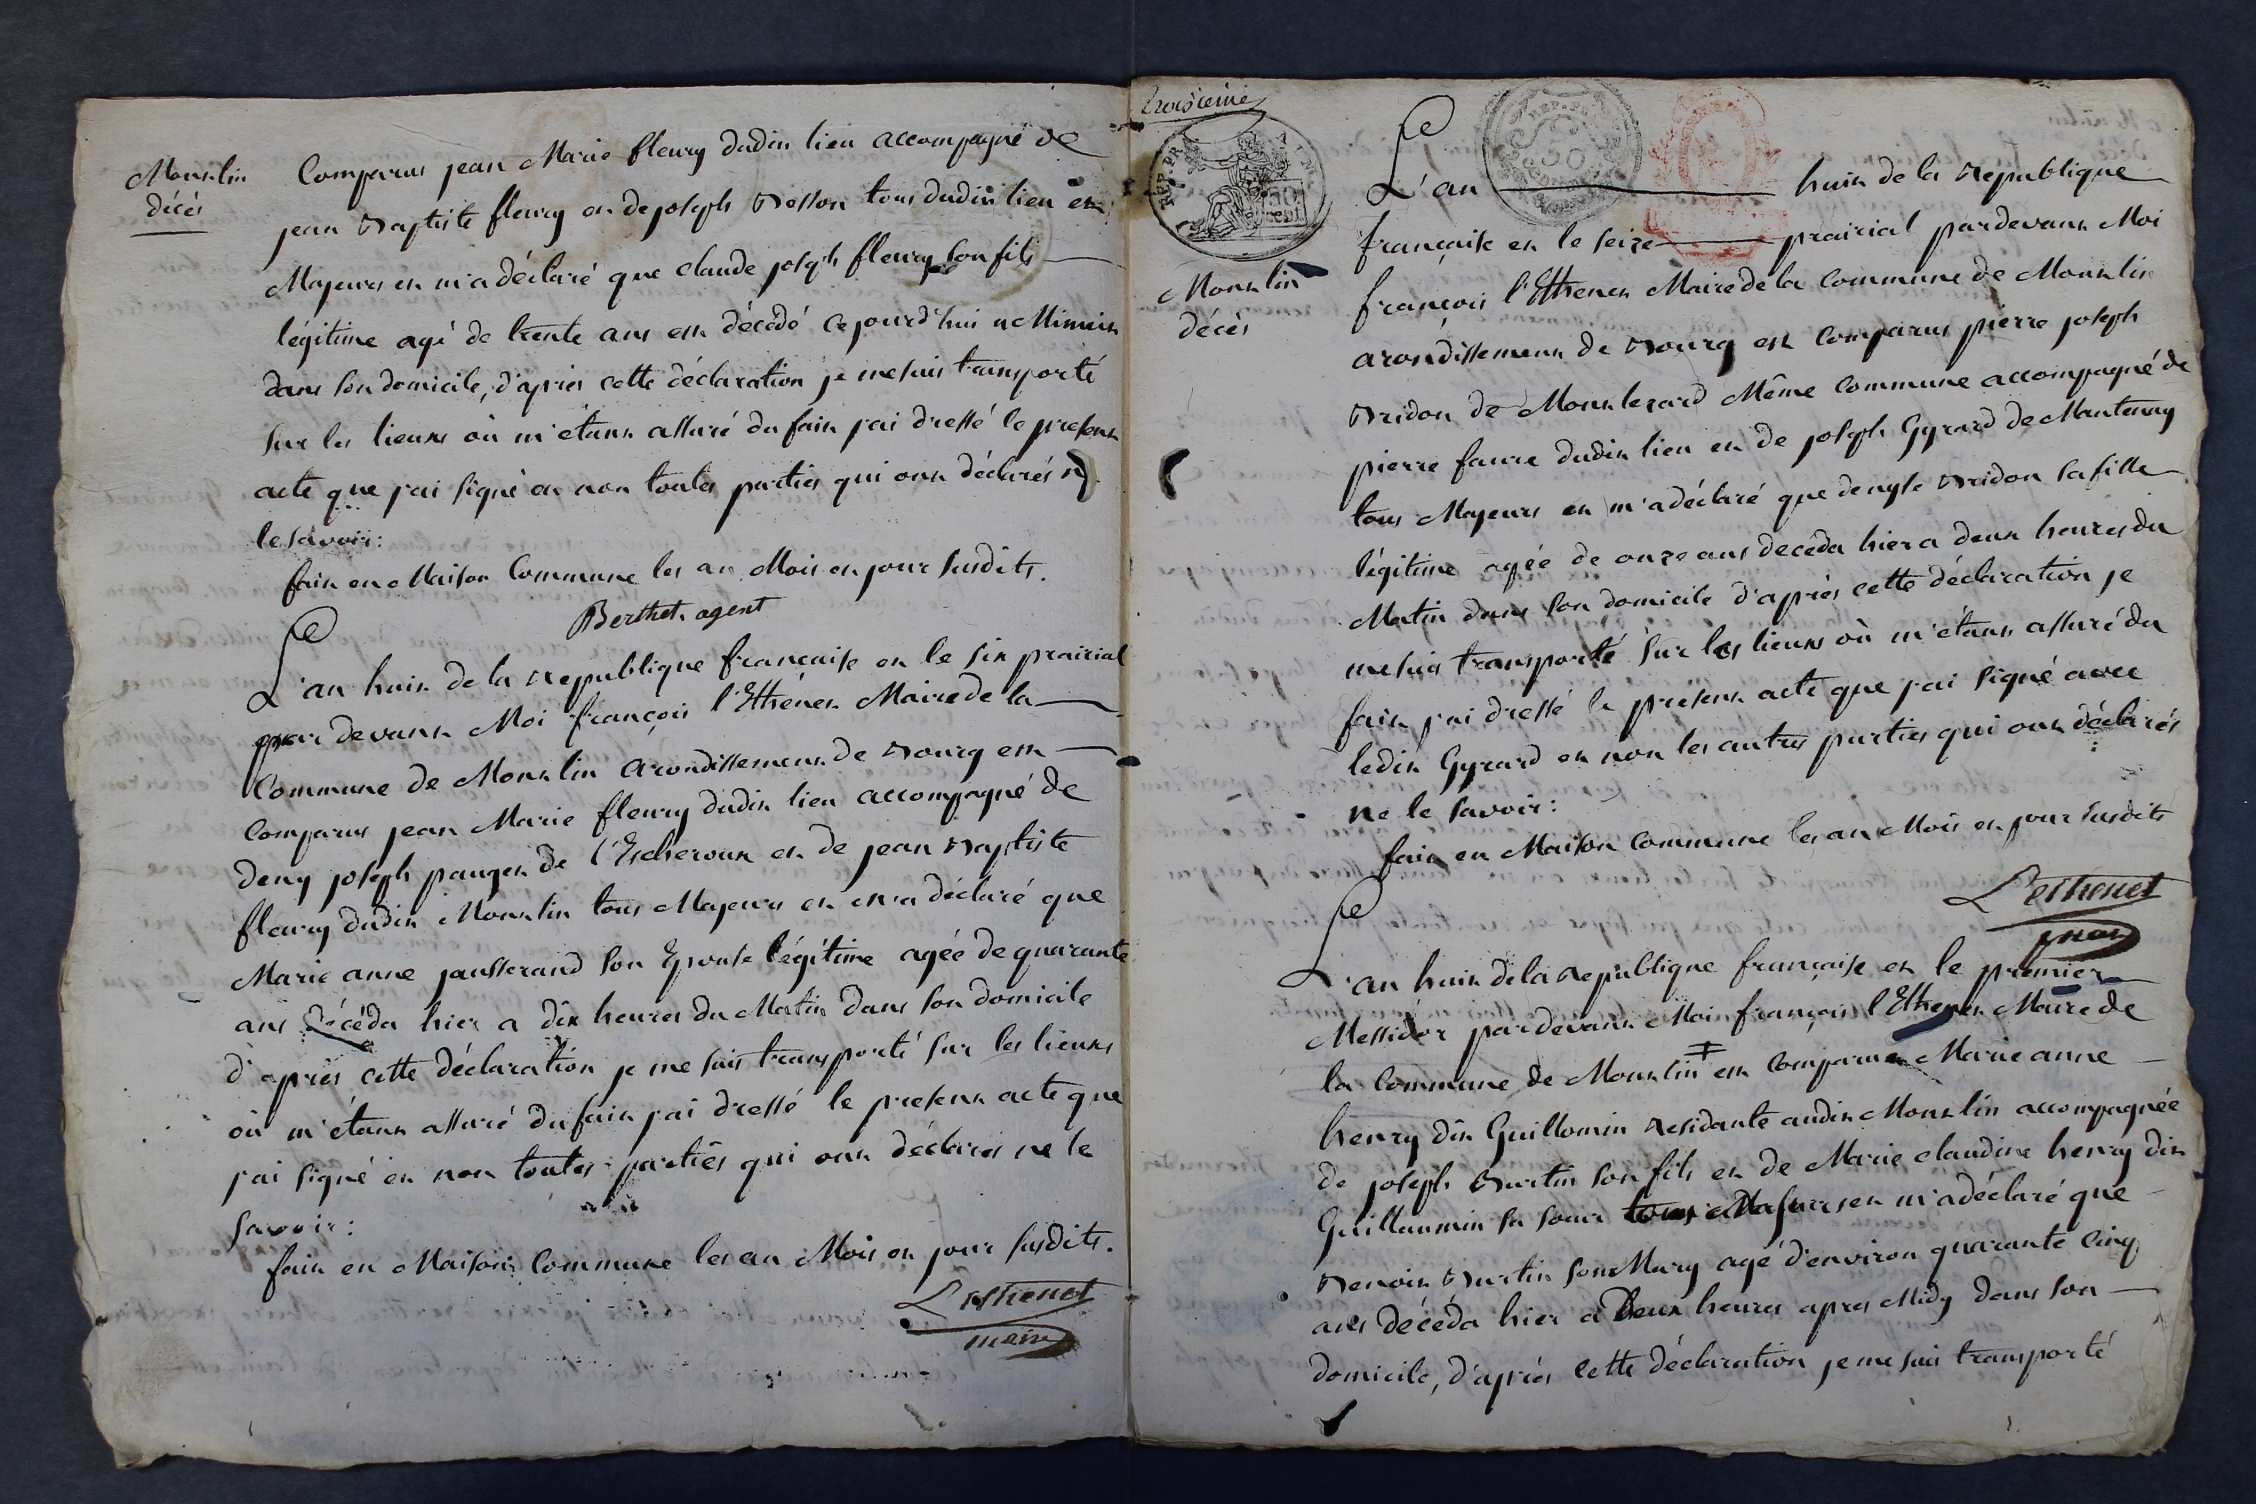 Mouslin
décès
Comparus jean Marie fleury dudin lieu accompagné de
jean Baptiste fleury et de joseph Besson tous dudit lieu et
Majeurs et m'a déclaré que claude joseph fleury son fils
légitime agé de trente ans est décédé cejourd'hui a Minuit
dans son domicile, d'après cette déclaration je me suis transporté
sur les lieux où m'étant assuré du fait j'ai dressé le present
acte que j'ai signé et non toutes parties qui ont déclarés ne
le savoir:
fait en Maison Commune les an Mois et jour susdits.
Berthet agent
L'an huit de la Republique française et le six prairial
par devant Moi françois l'Ethenet Maire de la
Commune de Mouslin arondissement de Bourg est
comparus jean Marie fleury dudit lieu accompagné de
deny joseph pauget de l'Escheroux et de jean Baptiste
fleury dudit Mouslin tous Majeurs et m'a déclaré que
Marie anne jausserand son Epouse légitime agée de quarante
ans décéda hier a dix heures du Matin dans son domicile
d'après cette déclaration je me suis transporté sur les lieux
où m'étant assuré du fait j'ai dressé le present acte que
j'ai signé et non toutes parties qui ont déclarés ne le
savoir:
fait en Maison Commune les an Mois et jour susdits.
L'esthenet
maire
troisieme
REP. FRA
50
cent
Mouslin
décès
L'an huit de la Republique
française et le seize prairial pardevant Moi
françois l'Ethenet Maire de la Commune de Mouslin
arondissement de Bourg est comparus pierre joseph
Bridon de Monlezard Même Commune accompagné de
pierre faure dudit lieu et de joseph Gyrard de Mantenay
tous Majeurs et m'a déclaré que denyse Bridon sa fille
légitime agée de onze ans deceda hier a deux heures du
Matin dans son domicile d'après cette déclaration je
me suis transporté sur les lieux où m'étant assuré du
fait j'ai dressé le present acte que j'ai signé avec
ledit Gyrard et non les autres parties qui ont déclarés
ne le savoir:
fait en Maison Commune les an Mois et jour susdits
L'esthenet
maire
L'an huit de la Republique française et le premier
Messidor pardevant Moi françois l'Ethenet Maire de
la Commune de Mouslin est comparue Marie anne
henry dit Guillomin Residante audit Mouslin accompagnée
de joseph Burtin son fils et de Marie claudine henry dit
Guillaumin sa sœur tous Majeurs et m'a déclaré que
Benoit Burtin son Mary agé d'environ quarante cinq
ans décéda hier a deux heures apres Midy dans son
domicile, d'après cette déclaration je me suis transporté